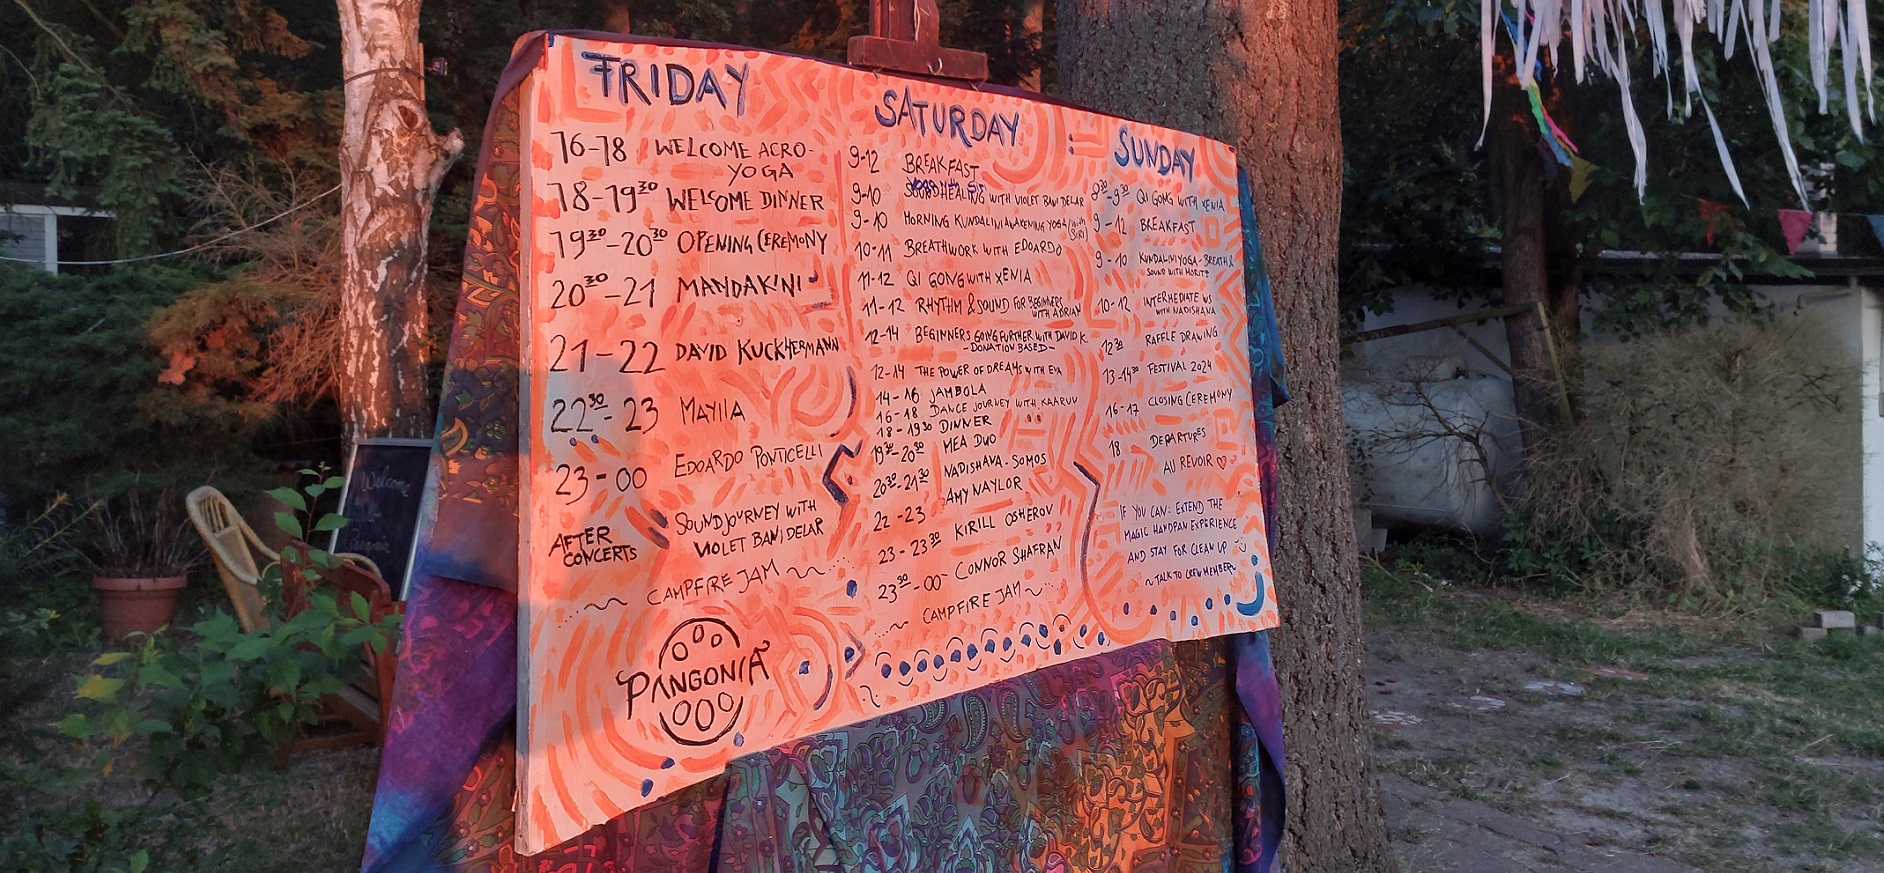 FRIDAY
16-18 WELCOME ACRO-
YOGA
18-19³⁰ WELCOME DINNER
19³⁰-20³⁰ OPENING CEREMONY
20³⁰-21 MANDAKINI
21-22 DAVID KUCKHERMANN
22³⁰-23 MAYIIA
23-00 EDOARDO PONTICELLI
AFTER
CONCERTS
SOUNDJOURNEY WITH
VIOLET BANIDELAR
CAMPFIRE JAM
PANGONIA
SATURDAY
9-12 BREAKFAST
9-10 SOUNDHEALING WITH VIOLET BANIDELAR
9-10 MORNING KUNDALINI AWAKENING YOGA (with
SIRI)
10-11 BREATHWORK WITH EDOARDO
11-12 QI GONG WITH XENIA
11-12 RHYTHM & SOUND FOR BEGINNERS
WITH ADRIAN
12-14 BEGINNERS GOING FURTHER WITH DAVID K.
-DONATION BASED-
12-14 THE POWER OF DREAMS WITH EVA
14-16 JAMBOLA
16-18 DANCE JOURNEY WITH KAARUV
18-19³⁰ DINNER
19³⁰-20³⁰ MEA DUO
20³⁰-21³⁰ NADISHANA-SOMOS
AMY NAYLOR
22-23 KIRILL OSHEROV
23-23³⁰ CONNOR SHAFRAN
23³⁰-00
CAMPFIRE JAM
SUNDAY
8³⁰-9³⁰ QI GONG WITH XENIA
9-12 BREAKFAST
9-10 KUNDALINIYOGA-BREATH &
SOUND WITH MORITZ
10-12 INTERMEDIATE WS
WITH NADISHANA
12³⁰ RAFFLE DRAWING
13-14³⁰ FESTIVAL 2024
16-17 CLOSING CEREMONY
18 DEPARTURES
AU REVOIR ♡
IF YOU CAN: EXTEND THE
MAGIC HANDPAN EXPERIENCE
AND STAY FOR CLEAN UP
~TALK TO CREWMEMBER~
Welcome
Pangonia